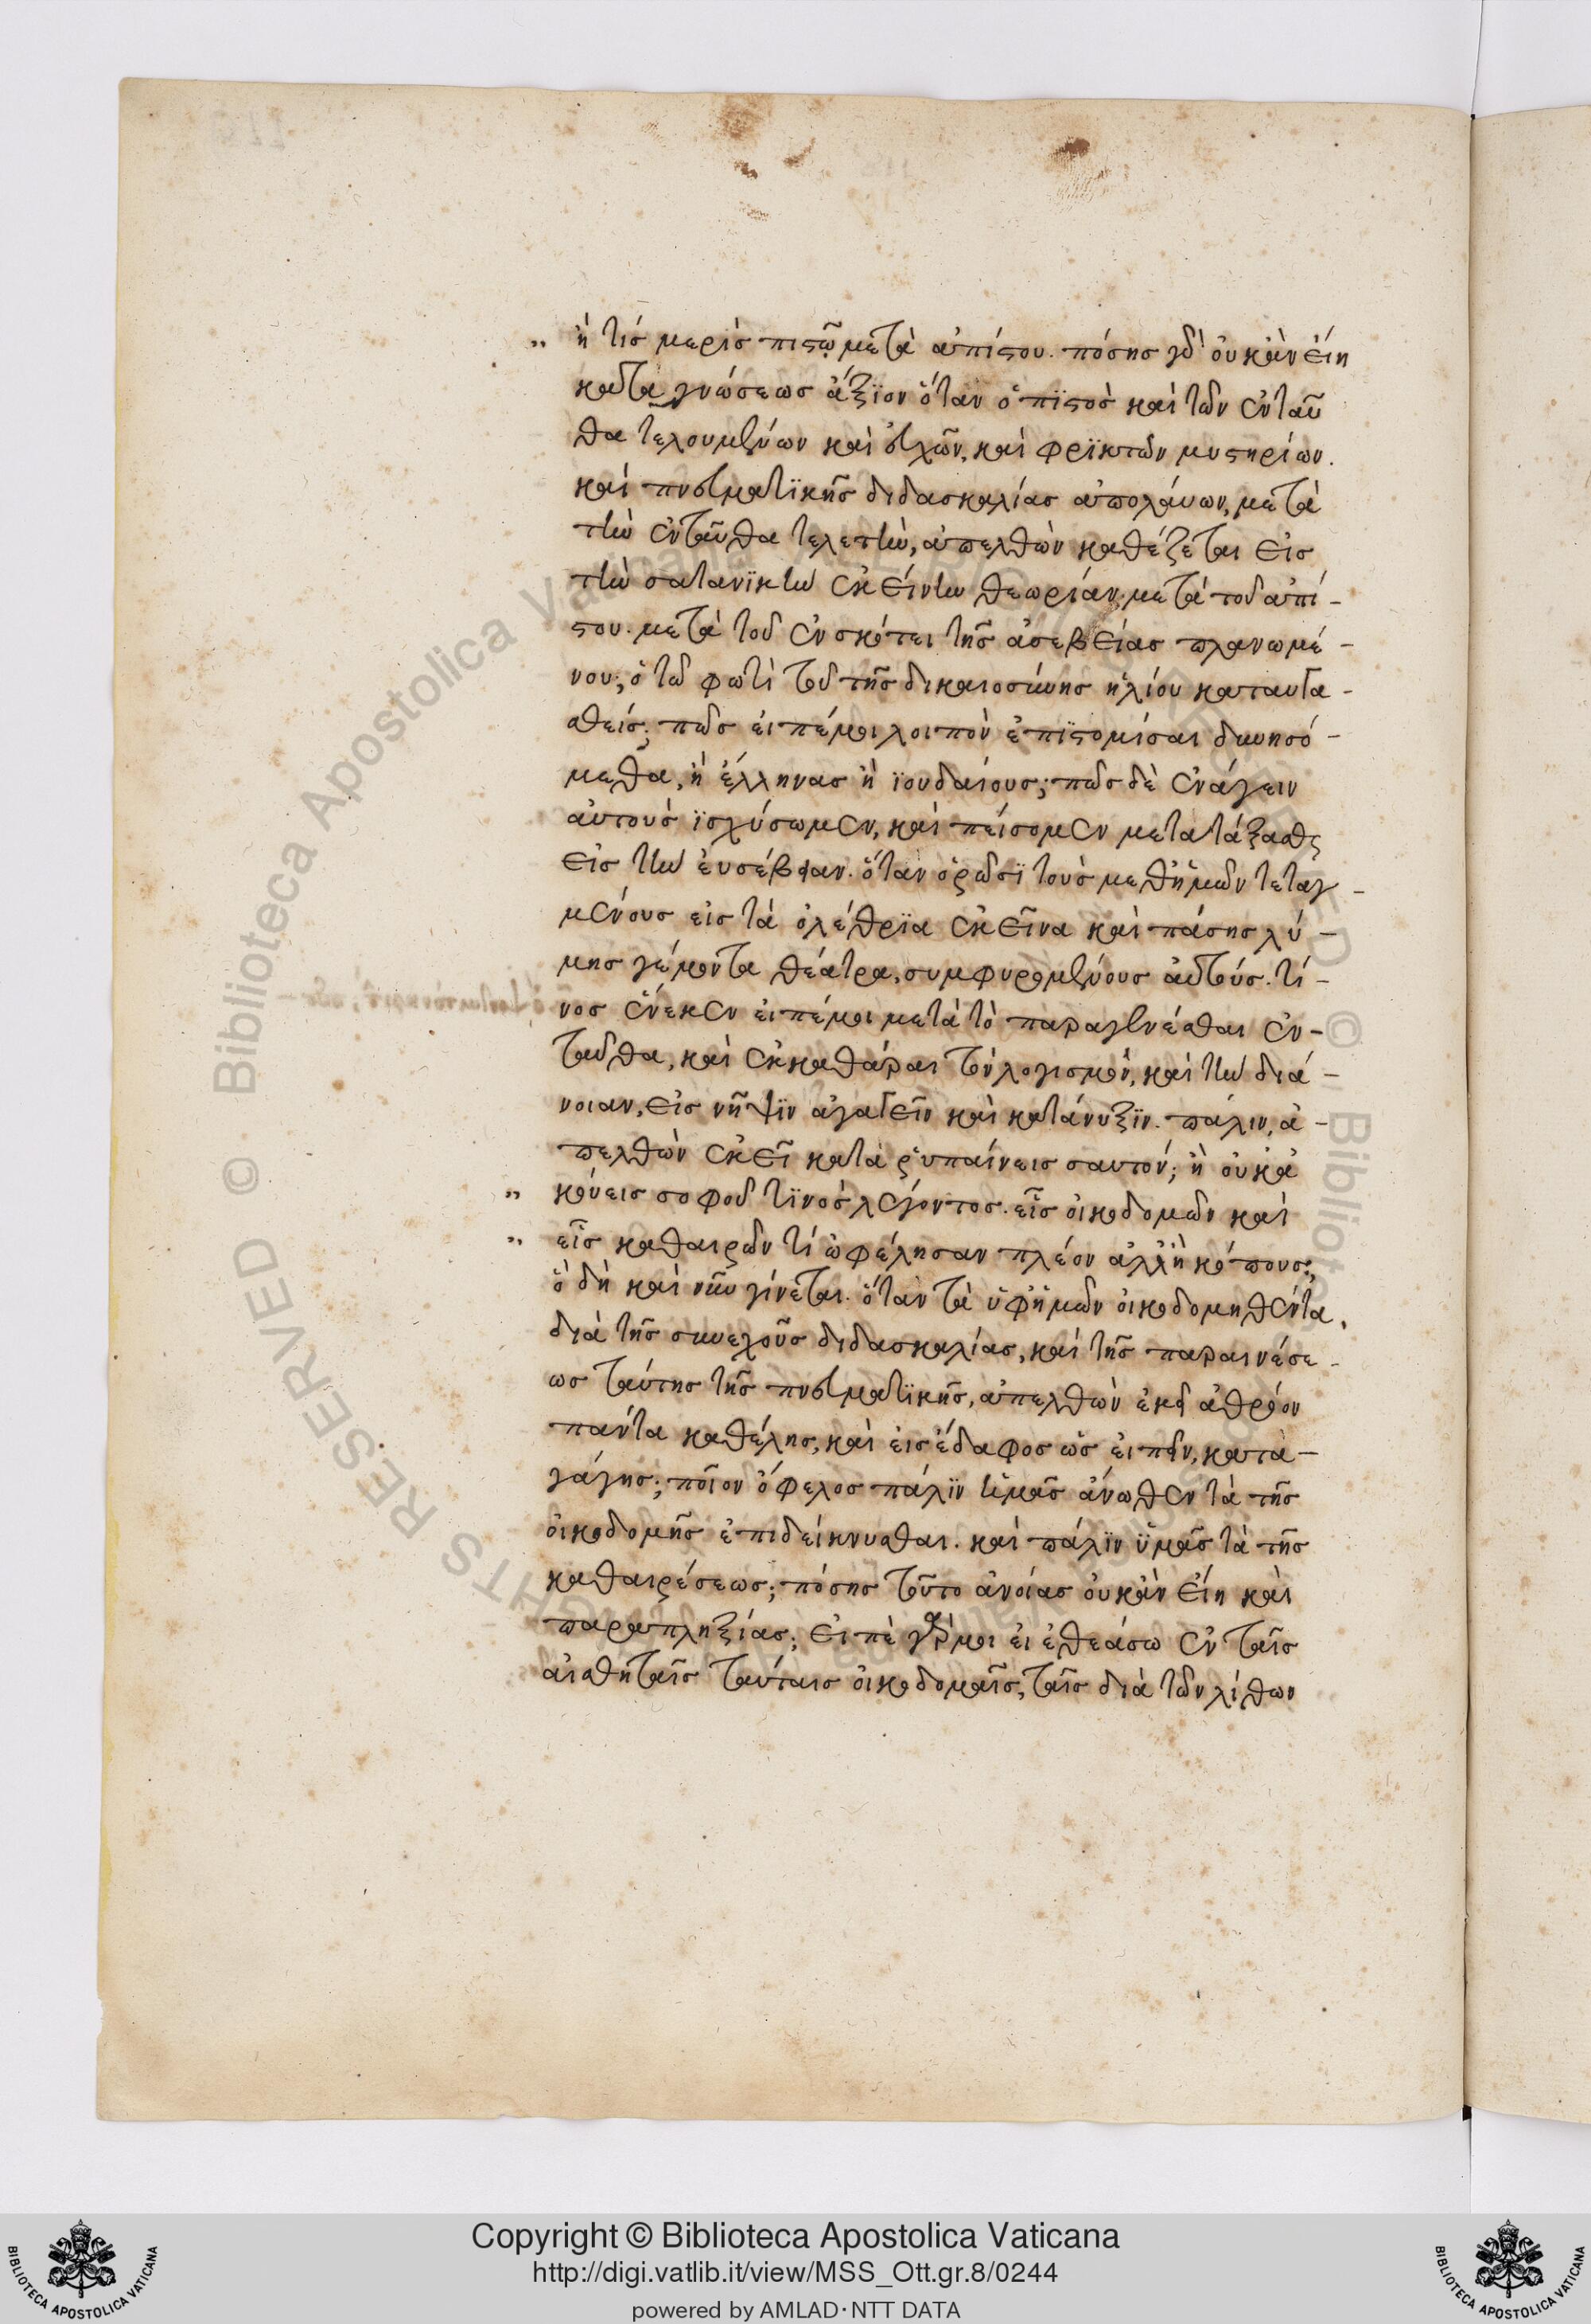 " ἢ τίς μερὶς πιστῷ μετὰ ἀπίστου. πόσης γὰρ οὐκ ἂν εἴη
καταγνώσεως ἄξϊον ὅταν ὁ πϊστὸς καὶ τῶν ἐνταῦ
θα τελουμένων καὶ εὐχῶν, καὶ φρϊκτῶν μυστηρίων.
καὶ πνευματϊκῆς διδασκαλίας ἀπολαύων, μετὰ
τὴν ἐνταῦθα τελετὴν, ἀπελθὼν καθέζεται εἰς
τὴν σατανϊκὴν ἐκείνην θεωρίαν. μετὰ τοῦ ἀπί-
στου. μετὰ τοῦ ἐν σκότει τῆς ἀσεβείας πλανωμέ-
νου; ὁ τῷ φωτὶ τοῦ τῆς δικαιοσύνης ἡλίου καταυγα-
σθείς; πῶς εἰπέ μοι λοιπὸν ἐπϊστομίσαι δυνησό-
μεθα, ἢ ἕλληνας ἢ ϊουδαίους; πῶς δὲ ἐνάγειν
αὐτοὺς ϊσχύσωμεν, καὶ πείσομεν μετατάξασθαι
εἰς τὴν εὐσέβειαν. ὅταν ὁρῶσϊ τοὺς μεθ' ἡμῶν τεταγ-
μένους εἰς τὰ ὀλέθρϊα ἐκεῖνα καὶ πάσης λύ-
μης γέμοντα θέατρα, συμφυρομένους αὐτούς. τί-
νος ἕνεκεν εἰπέ μοι μετὰ τὸ παραγενέσθαι ἐν-
ταῦθα, καὶ ἐκκαθάραι τὸν λογισμὸν, καὶ τὴν διά-
νοιαν, εἰς νῆψϊν ἀγαγεῖν καὶ κατάνυξϊν. πάλιν, ἀ-
πελθὼν ἐκεῖ καταρρυπαίνεις σαυτόν; ἢ οὐκ ἀ
" κούεις σοφοῦ τϊνὸς λέγοντος. εἷς οἰκοδομῶν καὶ
" εἷς καθαιρῶν τί ὠφέλησαν πλέον ἀλλ' ἢ κόπους;
ὃ δὴ καὶ νῦν γίνεται. ὅταν τὰ ὑφ' ἡμῶν οἰκοδομηθέντα,
διὰ τῆς συνεχοῦς διδασκαλίας, καὶ τῆς παραινέσε-
ως ταύτης τῆς πνευματϊκῆς, ἀπελθὼν ἐκεῖ ἀθρόον
πάντα καθέλης, καὶ εἰς ἔδαφος ὡς εἰπεῖν, κατα-
γάγης; ποῖον ὄφελος πάλϊν ἡμᾶς ἄνωθεν τὰ τῆς
οἰκοδομῆς ἐπιδείκνυσθαι. καὶ πάλϊν ὑμᾶς τὰ τῆς
καθαιρέσεως; πόσης τοῦτο ἀνοίας οὐκ ἂν εἴη καὶ
παραπληξίας; εἰπὲ γάρ μοι εἰ ἐθεάσω ἐν ταῖς
αἰσθηταῖς ταύταις οἰκοδομαῖς, ταῖς διὰ τῶν λίθων
Copyright © Biblioteca Apostolica Vaticana
http://digi.vatlib.it/view/MSS_Ott.gr.8/0244
powered by AMLAD·NTT DATA